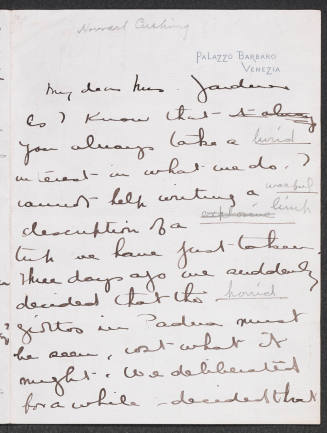 Howard Cushing
PALAZZO BARBARO
VENEZIA
My dear Mrs. Gardner
As I know that it always
you always take a lurid
interest in what we do. I
cannot help writing a woeful
explosive limp
description of a
trip we have just taken
Three days ago we suddenly
decided that the horrid
giottos in Padua must
be seen, cost what it
might. We deliberated
for a while - decided that